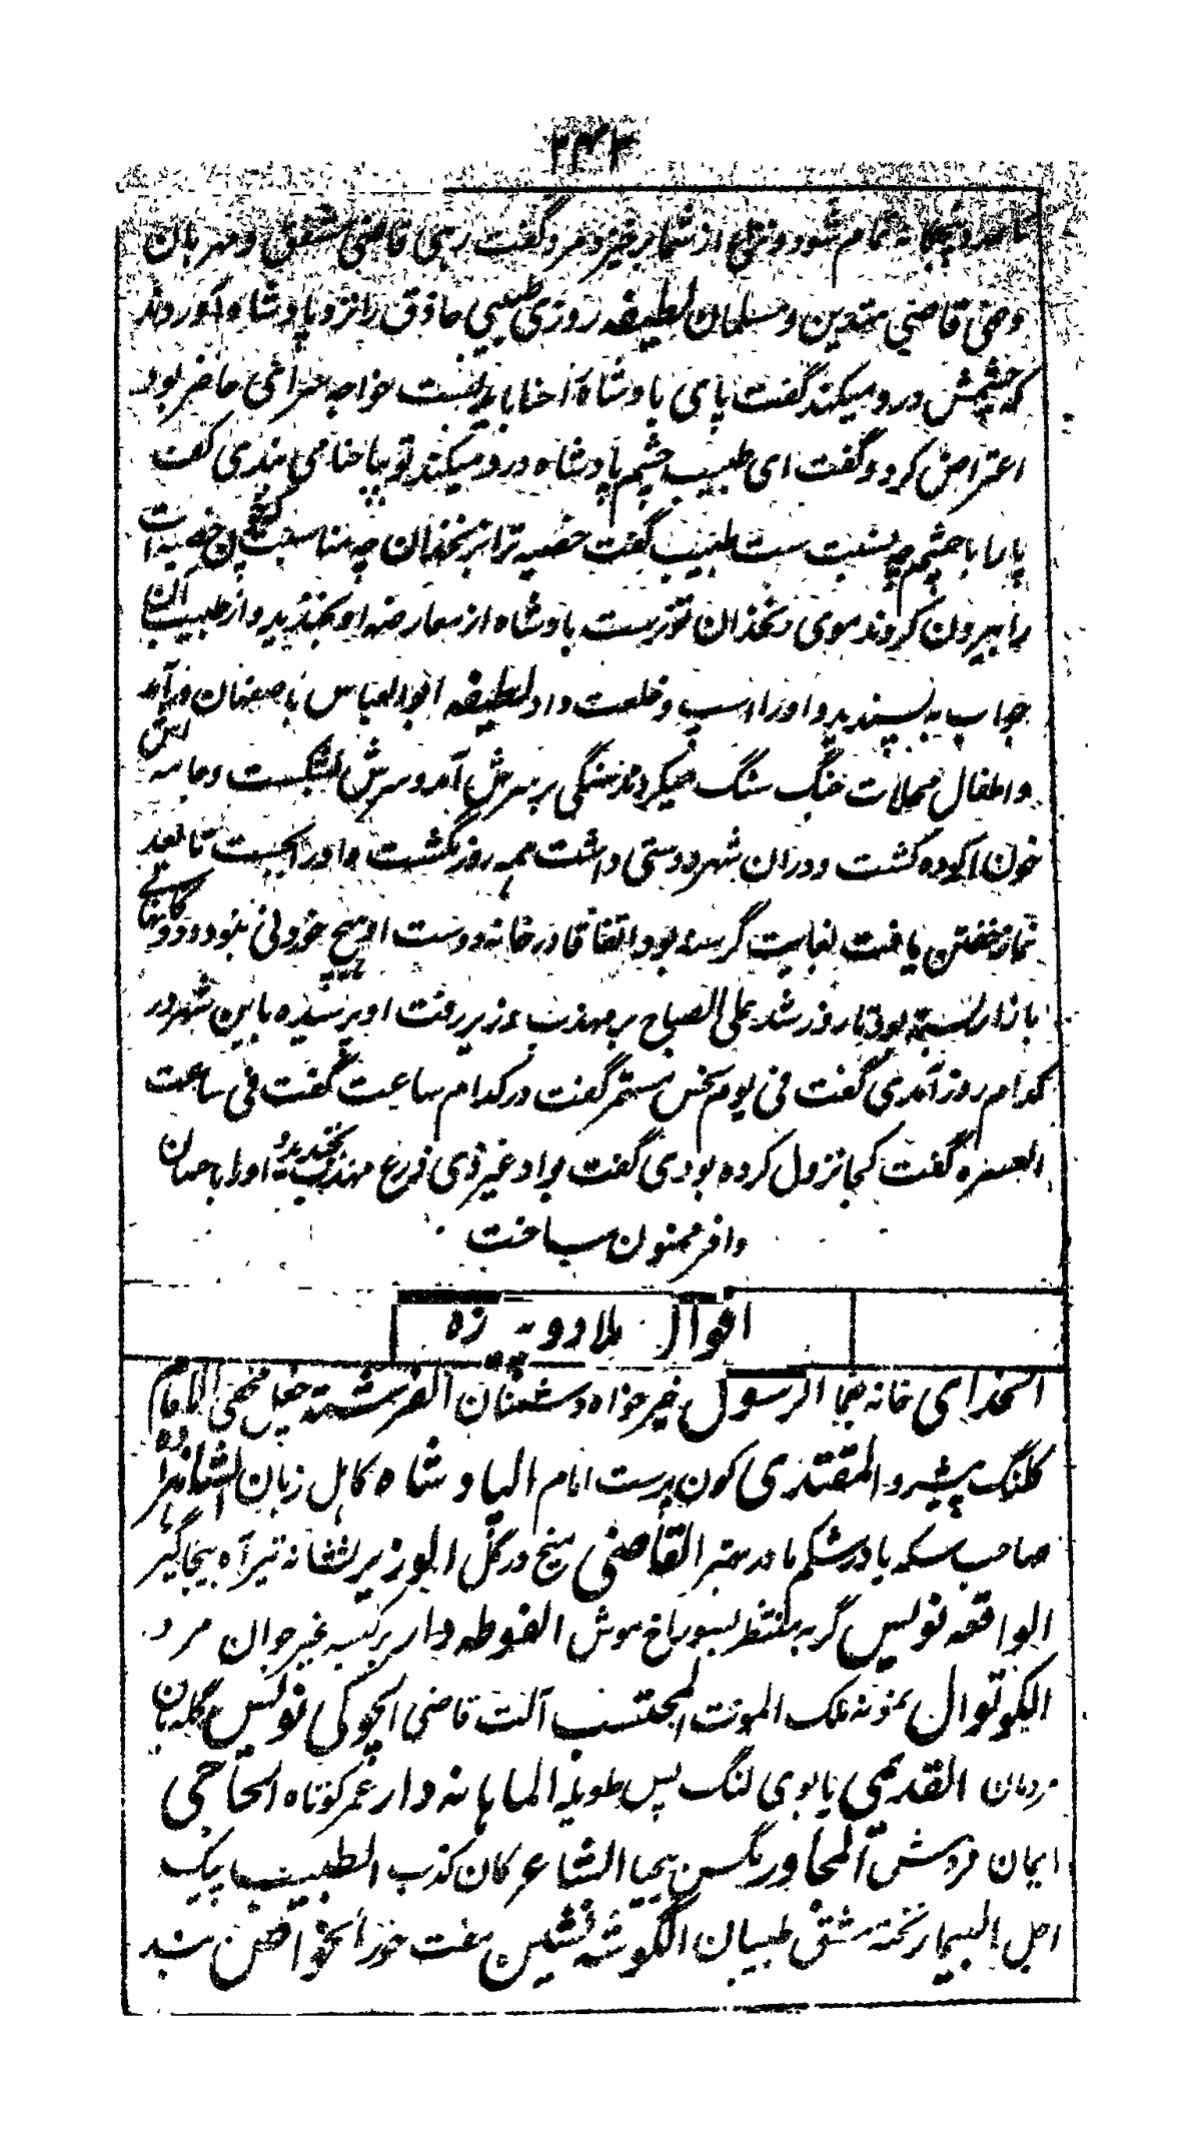 ۲۴۳
تمام شود و نزاع از شما برخیزد مرد گفت زهی قاضی مشفق و مهربان
وخی قاضی متدین و مسلمان لطیفه روزی طبیبی حاذق را نزد پادشاه آوردند
که چشمش درد میکند گفت پای پادشاه را حنا باید بست خواجه سرائی حاضر بود
اعتراض کرد و گفت ای طبیب چشم پادشاه درد میکند تو بپا حنا می بندی گفت
پا را با چشم چه نسبت ست طبیب گفت خصیه ترا بزنخدان چه مناسبت چون خصیه ات
را بیرون کردند موی زنخدان تو نرست پادشاه از معارضه او بخندید و از طبیب آن
جواب به پسندید و او را اسپ و خلعت داد لطیفه ابوالعباس باصفهان در آمد
و اطفال محلات جنگ سنگ میکردند سنگی بر سرش آمد و سرش بشکست و جامه اش
خون آلوده گشت و در آن شهر دوستی داشت همه روز بگشت و او را بجست تا بعد
نماز خفتن یافت بغایت گرسنه بود اتفاقا در خانه دوست او هیچ خوردنی نبود و دوکانهای
بازار بسته بود تا روز شد علی الصباح بر مهذب وزیر رفت او پرسیده باین شهر در
کدام روز آمدی گفت فی یوم نحس مستمر گفت در کدام ساعت گفت فی ساعت
العسره گفت کجا نزول کرده بودی گفت بواد غیر ذی زرع مهذب بخندید و او را باحسان
وافر ممنون ساخت
اقوال ملا دو پیازه
الخدای خانه یغما الرسول خیر خواه دشمنان الفرشته چپل مخفی الامام
کلنگ پیشرو المقتدی کون پرست امام البادشاه کاهل زبان الشاهزاده
صاحب سکه با در شکم مادر مهتر القاضی میخ در گل الوزیر نشانه تیر آه بیچارگیر
الواقعه نویس گربه منتظر بسوراخ موش الفوطه دار بر کیسه غیر جوان مرد
الکوتوال نمونه ملک الموت المحتسب آلت قاضی الچوکی نویس گله بان
مردمان القدیمی یابوی لنگ پس طویله الماهانه دار عمر کوتاه الحاجی
ایمان فروش المجاور مگس بیحیا الشاعر کان کذب الطبیب پیک
اجل البیمار تخته مشق طبیبان الگوشه نشین مفت خور الخواص بند